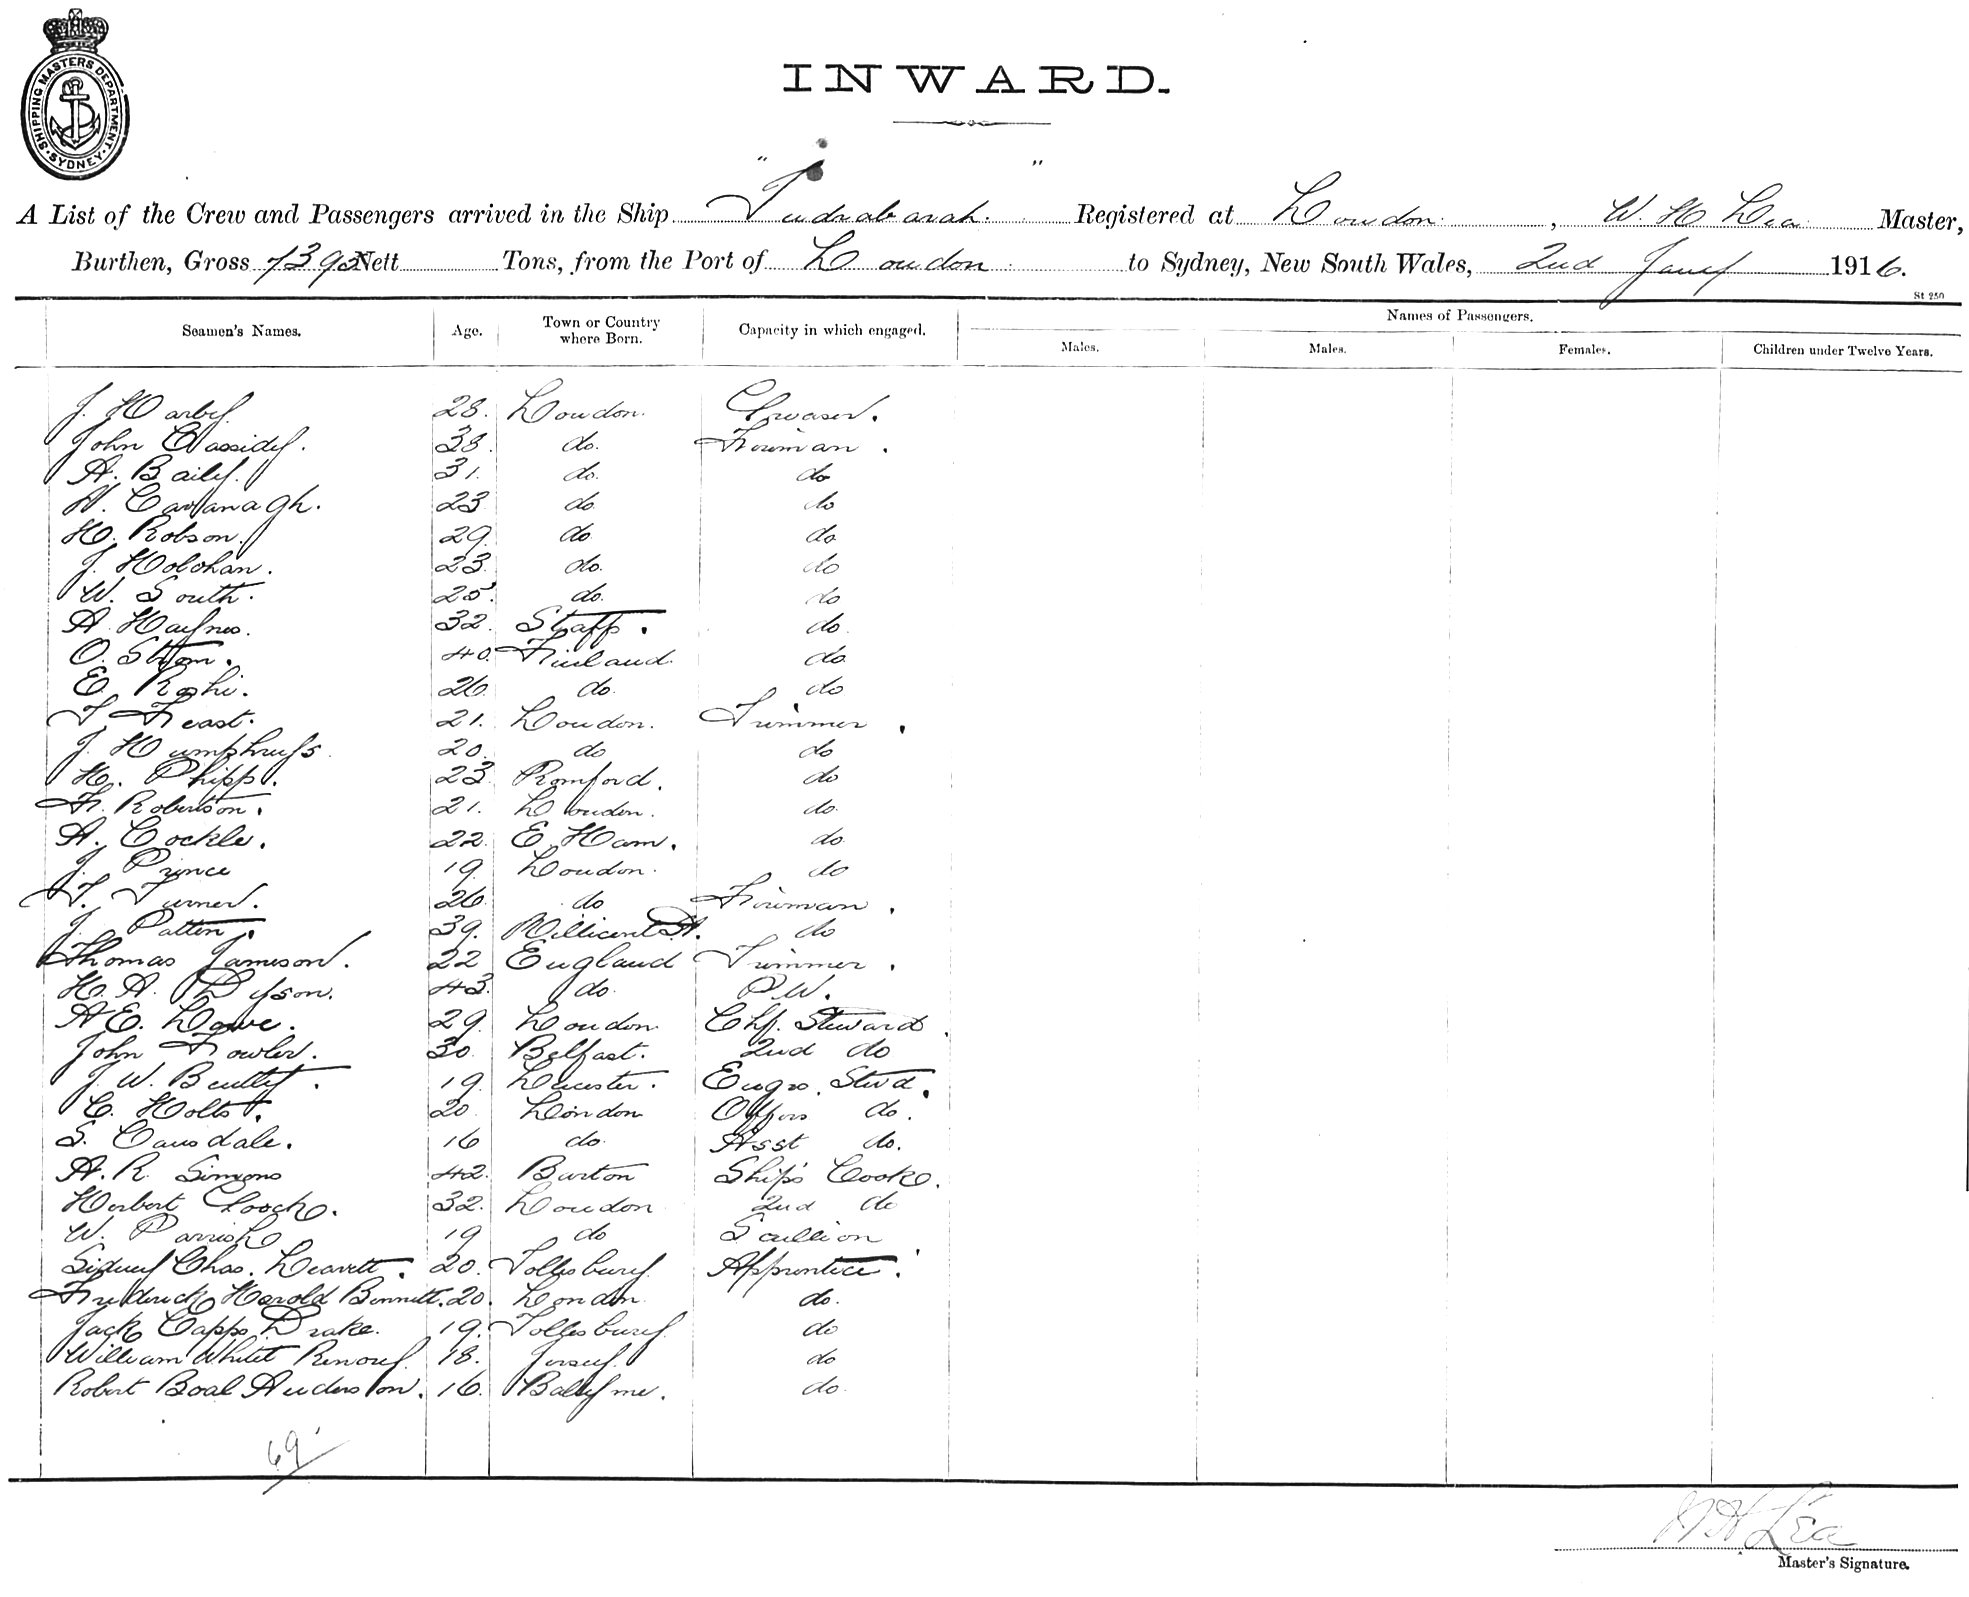 SHIPPING MASTERS DEPARTMENT. SYDNEY.
INWARD.
A List of the Crew and Passengers arrived in the Ship "Indrabarah." Registered at London, W. H. Lea Master,
Burthen, Gross 7395 Nett Tons, from the Port of London to Sydney, New South Wales, 2nd Jany 1916.
St 250
Seamen's Names. Age. Town or Country where Born. Capacity in which engaged. Names of Passengers.
Males. Males. Females. Children under Twelve Years.
J. Harby 28. London. Greaser.
John Cassidy. 38. do. Fireman.
A. Baily. 31. do. do
W. Cavanagh. 23 do do
H. Robson. 29. do do
J. Holohan. 23. do. do
W. South. 25. do. do
A. Haynes. 32. Staff. do.
O. Strom. 40. Finland. do
E. Roshi. 26. do. do
T. Feast. 21. London. Trimmer.
J. Humphreys 20. do do
H. Phipp. 23 Romford. do
F. Robertson. 21. London. do.
A. Cockle. 22. E. Ham. do
J. Prince 19. London. do
T. Turner. 26. do Fireman.
J. Patten. 39. Millicent S.A. do
Thomas Jameson. 22 England Trimmer.
H. A. Dyson. 43. do. P.W.
A E. Lowe. 29. London. Chf. Steward.
John Fowler. 30. Belfast. 2nd do
J. W. Bentley. 19. Leicester. Engrs. Stwd.
C. Holts. 20. London Offrs do.
S. Causdale. 16 do. Asst do.
A. R. Simons 42. Burton Ships Cook.
Herbert Gooch. 32. London 2nd do
W. Parrish 19 do Scullion
Sidney Chas. Leavett. 20. Tollesbury Apprentice.
Frederick Harold Bennett. 20. London. do.
Jack Capps Drake. 19. Tollesbury do
William Whitet Renouf. 18. Jersey. do
Robert Boal Anderson. 16. Ballyme. do.
69
W H Lea
Master's Signature.